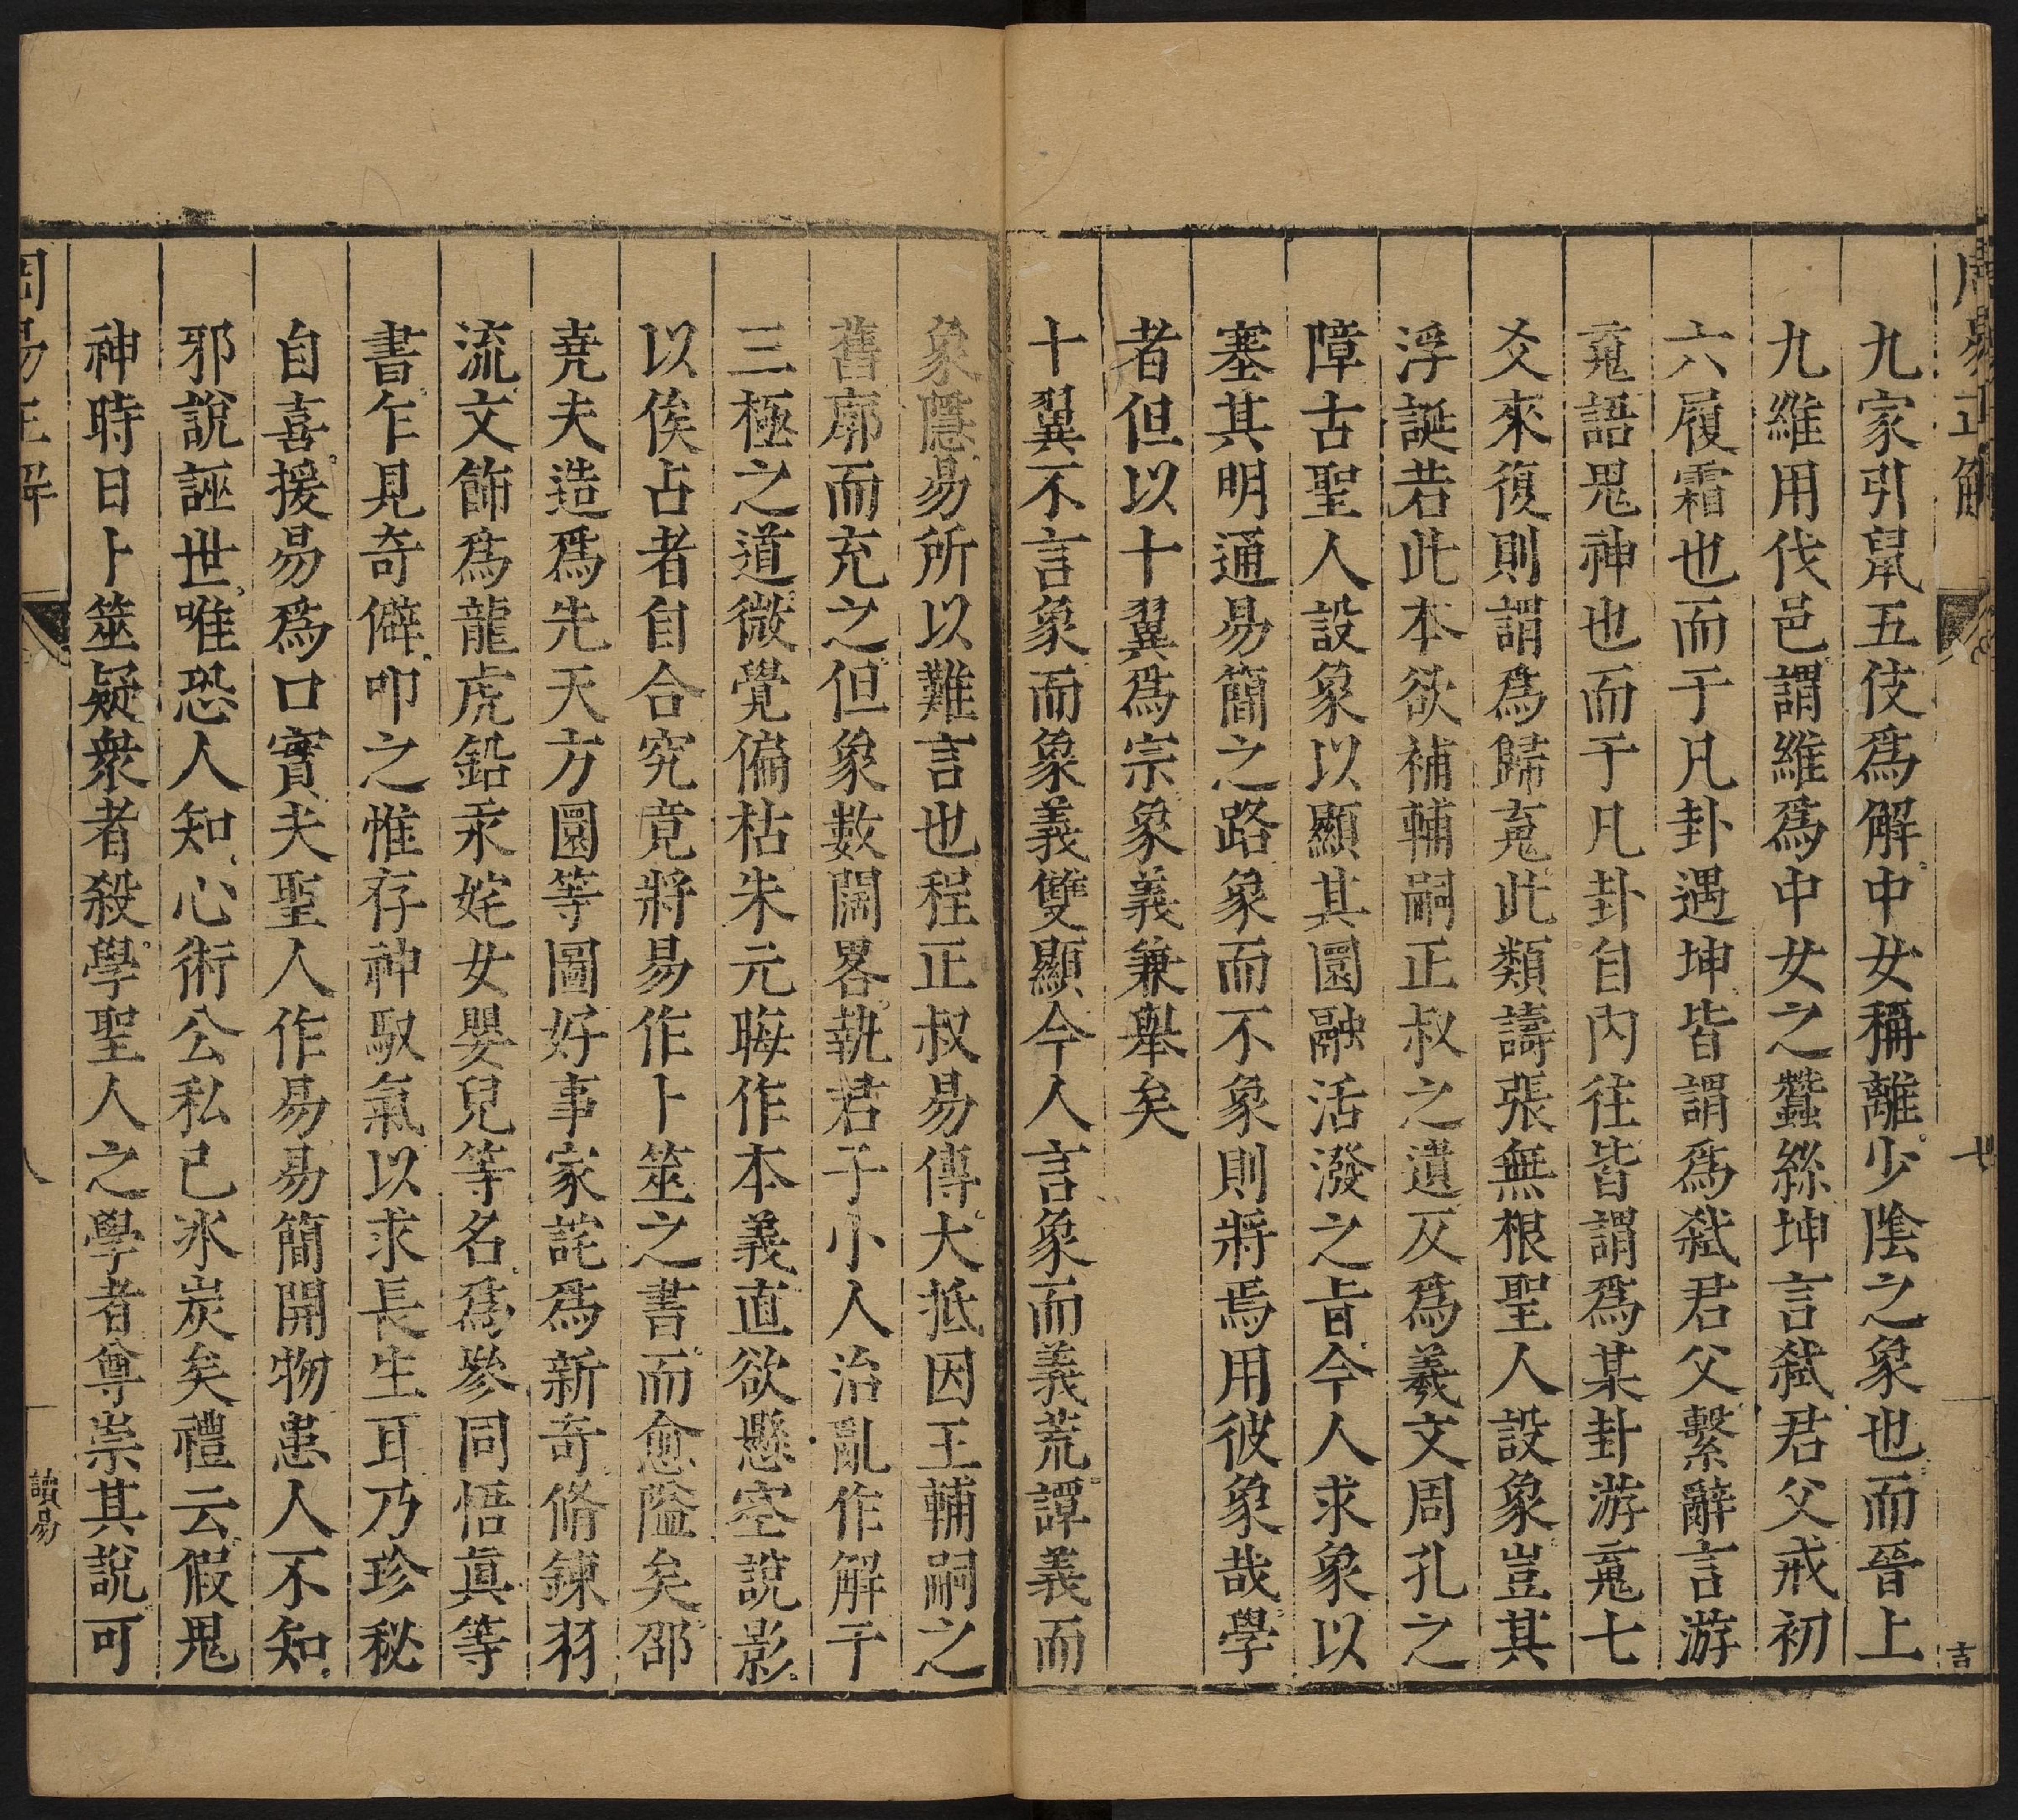 周易正解
七
吉
九家引鼠五伎爲解中女稱離少陰之象也而晉上
九維用伐邑謂維爲中女之蠶絲坤言弑君父戒初
六履霜也而于凡卦遇坤皆謂爲弑君父繫辭言游
䰟語鬼神也而于凡卦自内往皆謂爲某卦游䰟七
爻來復則謂爲歸䰟此類譸張無根聖人設象豈其
浮誕若此本欲補輔嗣正叔之遺反爲羲文周孔之
障古聖人設象以顯其圓融活潑之旨今人求象以
塞其明通易簡之路象而不象則將焉用彼象哉學
者但以十翼爲宗象義兼舉矣
十翼不言象而象義雙顯今人言象而義荒譚義而
象隱易所以難言也程正叔易傳大抵因王輔嗣之
舊廓而充之但象數闊畧執君子小人治亂作解于
三極之道微覺偏枯朱元晦作本義直欲懸空說影
以俟占者自合究竟將易作卜筮之書而愈隘矣邵
堯夫造爲先天方圓等圖好事家詫爲新奇脩鍊羽
流文飾爲龍虎鉛汞姹女嬰兒等名爲參同悟眞等
書乍見奇僻叩之惟存神馭氣以求長生耳乃珍秘
自喜援易爲口實夫聖人作易易簡開物患人不知
邪說誣世唯恐人知心術公私已冰炭矣禮云假鬼
神時日卜筮疑衆者殺學聖人之學者尊崇其說可
周易正解
八
讀易